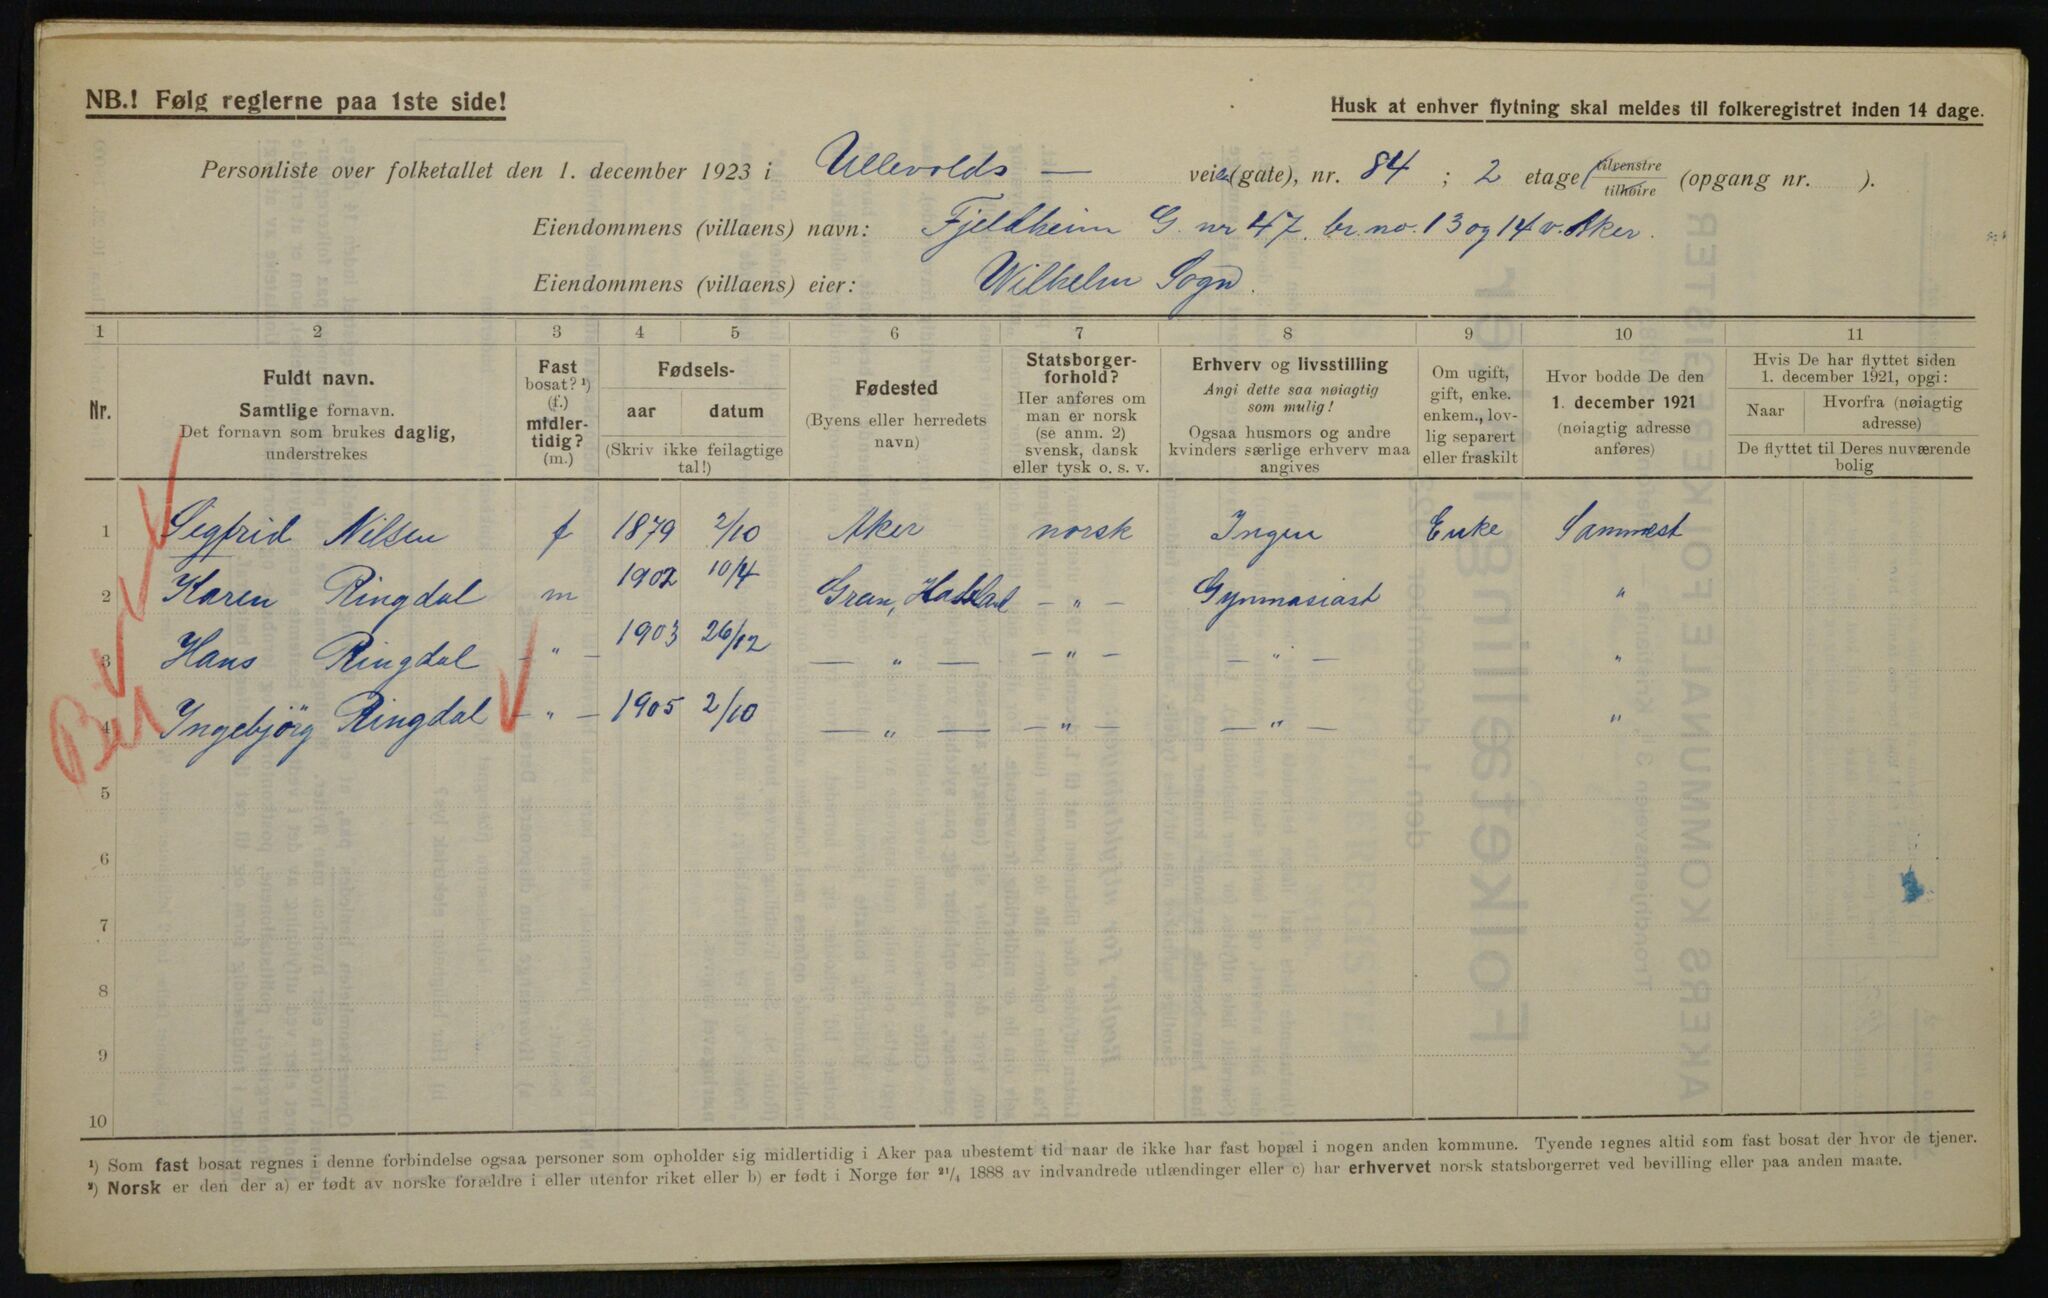 NB.! Følg reglerne paa 1ste side!
Husk at enhver flytning skal meldes til folkeregistret inden 14 dage.
Personliste over folketallet den 1. december 1923 i Ullevolds — veien (gate), nr. 84 ; 2 etage (tilvenstre / tilhøire (opgang nr. ).
Eiendommens (villaens) navn: Fjeldheim G. nr 47. br. no. 13 og 14 v. Aker.
Eiendommens (villaens) eier: Wilhelm Sogn.
1 2 3 4 5 6 7 8 9 10 11
Nr.
Fuldt navn.
Samtlige fornavn.
Det fornavn som brukes daglig,
understrekes
Fast
bosat? ¹)
(f.)
midler-
tidig?
(m.)
Fødsels-
aar datum
(Skriv ikke feilagtige
tal!)
Fødested
(Byens eller herredets
navn)
Statsborger-
forhold?
Her anføres om
man er norsk
(se anm. 2)
svensk, dansk
eller tysk o. s. v.
Erhverv og livsstilling
Angi dette saa nøiagtig
som mulig!
Ogsaa husmors og andre
kvinders særlige erhverv maa
angives
Om ugift,
gift, enke.
enkem., lov-
lig separert
eller fraskilt
Hvor bodde De den
1. december 1921
(nøiagtig adresse
anføres)
Hvis De har flyttet siden
1. december 1921, opgi:
Naar
Hvorfra (nøiagtig
adresse)
De flyttet til Deres nuværende
bolig
1 Segfrid Nilsen f 1879 2/10 Aker norsk Ingen Enke Sammest
2 Karen Ringdal m 1902 10/4 Gran, Hadeland — " — Gymnasiast "
3 Hans Ringdal — " — 1903 26/12 — " — — " — — " — "
4 Ingebjørg Ringdal — " — 1905 2/10 — " — — " — — " — "
5
6
7
8
9
10
¹) Som fast bosat regnes i denne forbindelse ogsaa personer som opholder sig midlertidig i Aker paa ubestemt tid naar de ikke har fast bopæl i nogen anden kommune. Tyende regnes altid som fast bosat der hvor de tjener.
²) Norsk er den der a) er født av norske forældre i eller utenfor riket eller b) er født i Norge før ²¹/₄ 1888 av indvandrede utlændinger eller c) har erhvervet norsk statsborgerret ved bevilling eller paa anden maate.